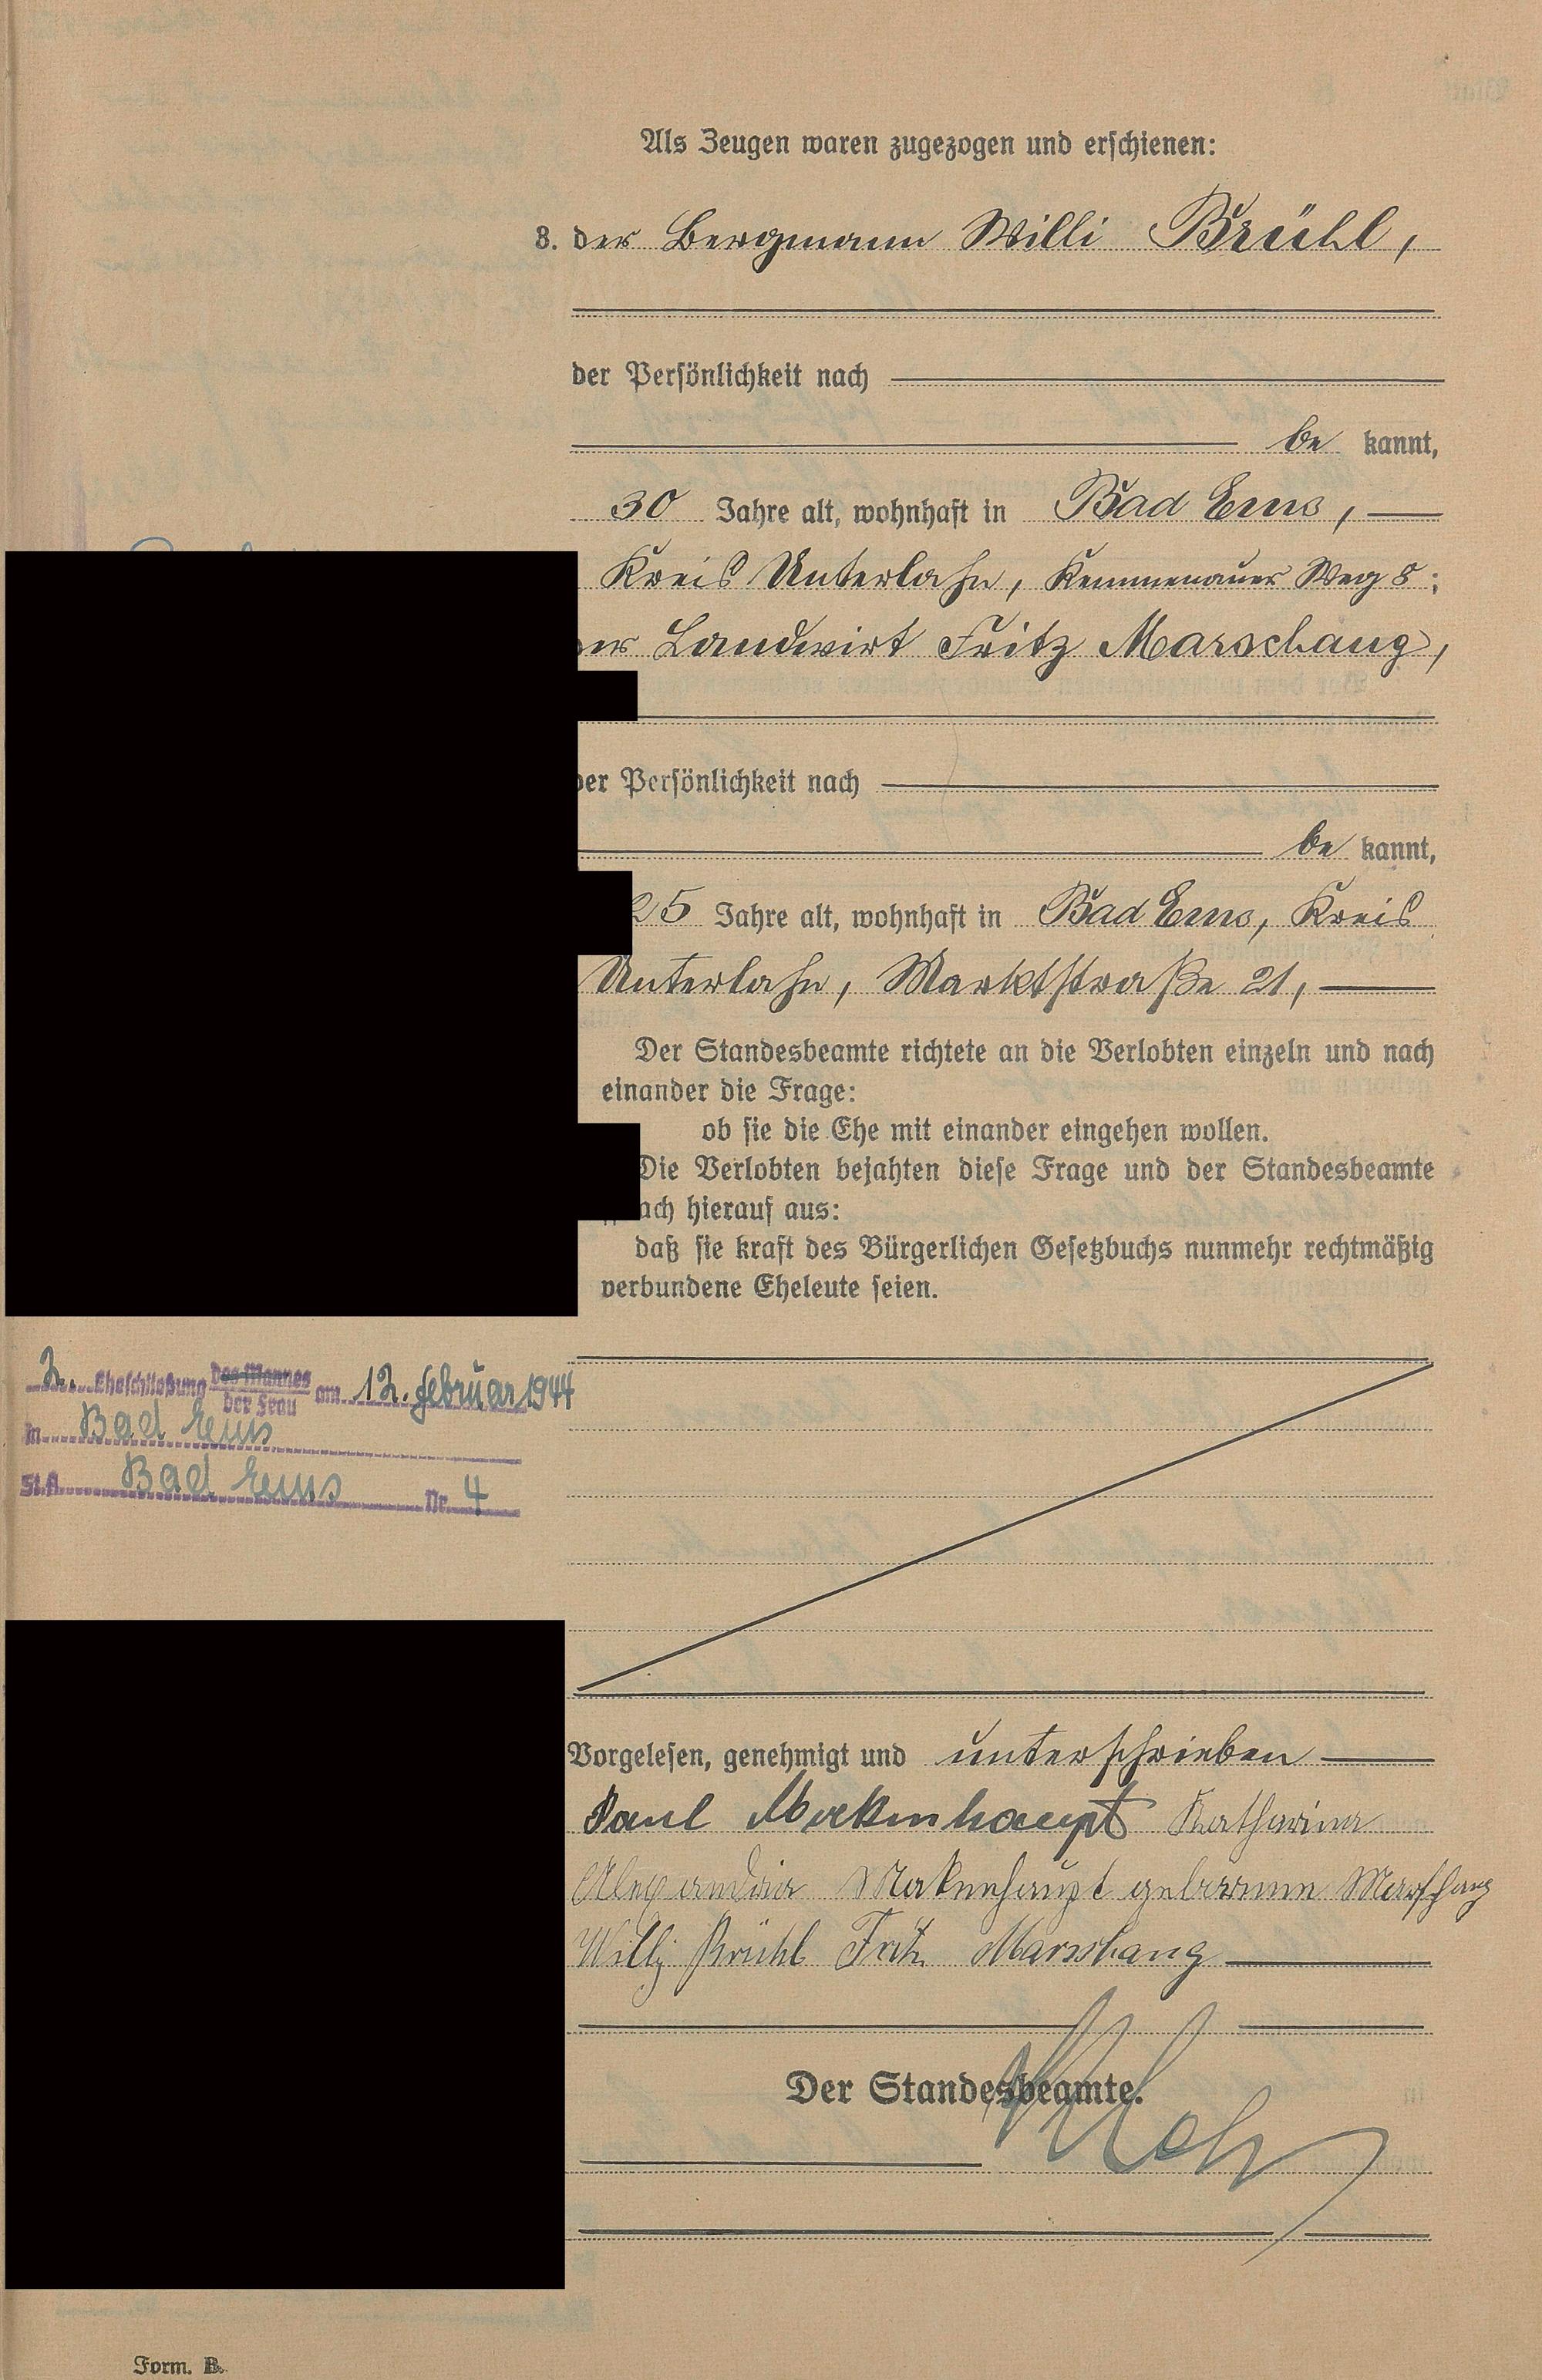 Als Zeugen waren zugezogen und erschienen:
8. der Bergmann Willi Brühl,
der Persönlichkeit nach
be kannt,
30 Jahre alt, wohnhaft in Bad Ems,
Kreis Unterlahn, Kemmenauer Weg 8;
er Landwirt Fritz Marschang,
der Persönlichkeit nach
be kannt,
25 Jahre alt, wohnhaft in Bad Ems, Kreis
Unterlahn, Marktstraße 21,
Der Standesbeamte richtete an die Verlobten einzeln und nach
einander die Frage:
ob sie die Ehe mit einander eingehen wollen.
Die Verlobten bejahten diese Frage und der Standesbeamte
ach hierauf aus:
daß sie kraft des Bürgerlichen Gesetzbuchs nunmehr rechtmäßig
verbundene Eheleute seien.
2. Eheschließung des Mannes der Frau am 12. Februar 1944
in Bad Ems
St.A. Bad Ems Nr. 4
Vorgelesen, genehmigt und unterschrieben
Paul Mockenhaupt Katharina
Alexandria Mokenhaupt geborenne Marschang
Willy Brühl Fritz Marschang
Der Standesbeamte.
Form. B.